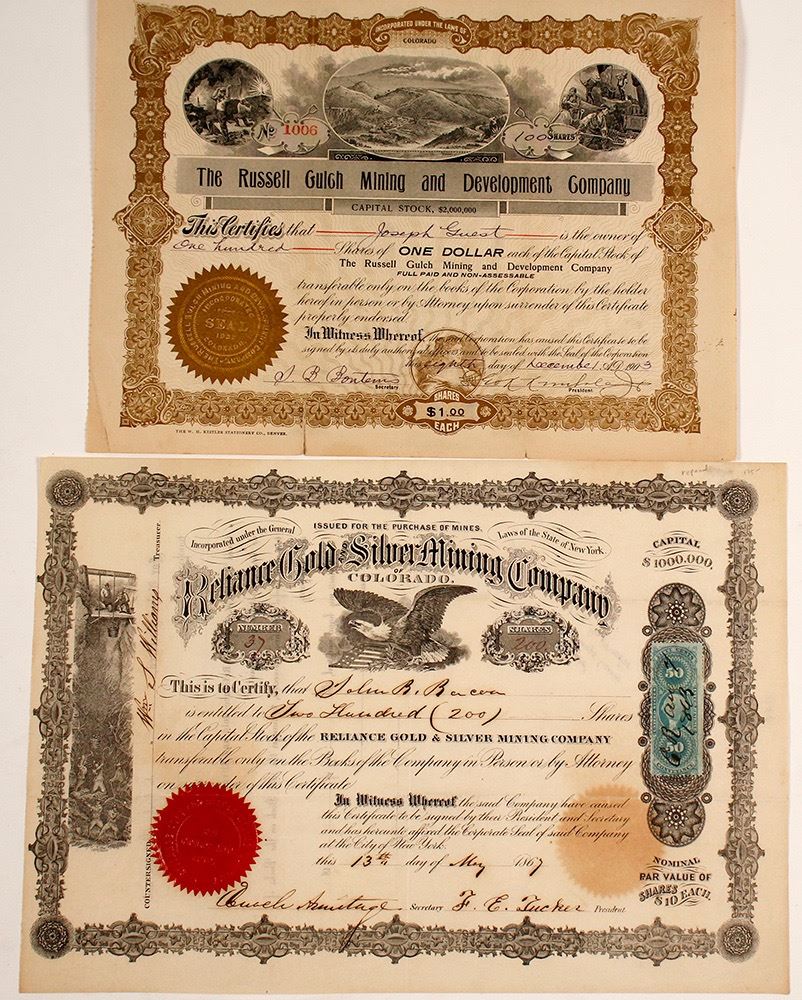 INCORPORATED UNDER THE LAWS OF
COLORADO
No 1006
100 SHARES
The Russell Gulch Mining and Development Company
CAPITAL STOCK, $2,000,000
This Certifies that Joseph Guest is the owner of
One hundred Shares of ONE DOLLAR each of the Capital Stock of
The Russell Gulch Mining and Development Company
FULL PAID AND NON-ASSESSABLE
transferable only on the books of the Corporation by the holder
hereof in person or by Attorney upon surrender of this Certificate
properly endorsed.
In Witness Whereof, the said Corporation has caused this Certificate to be
signed by its duly authorized officers and to be sealed with the Seal of the Corporation
this eighth day of December A.D. 1903
S B Bontems
Secretary
President
SEAL
COLORADO
SHARES
$1.00
EACH
THE W. H. KISTLER STATIONERY CO., DENVER.
ISSUED FOR THE PURCHASE OF MINES.
Incorporated under the General Laws of the State of New York.
Reliance Gold and Silver Mining Company
OF
COLORADO.
CAPITAL
$1000.000,
NUMBER
37
SHARES
200
This is to Certify, that John B. Bacon
is entitled to Two Hundred (200) Shares
in the Capital Stock of the RELIANCE GOLD & SILVER MINING COMPANY
transferable only on the Books of the Company in Person or by Attorney
on surrender of this Certificate
In Witness Whereof the said Company have caused
this Certificate to be signed by their President and Secretary
and has hereunto affixed the Corporate Seal of said Company
at the City of New York.
this 13th day of May 1867
Enoch Armitage Secretary F. E. Tucker President
COUNTERSIGNED
Wm S. Williams
Treasurer
50
50
NOMINAL
PAR VALUE OF
SHARES
$10 EACH.